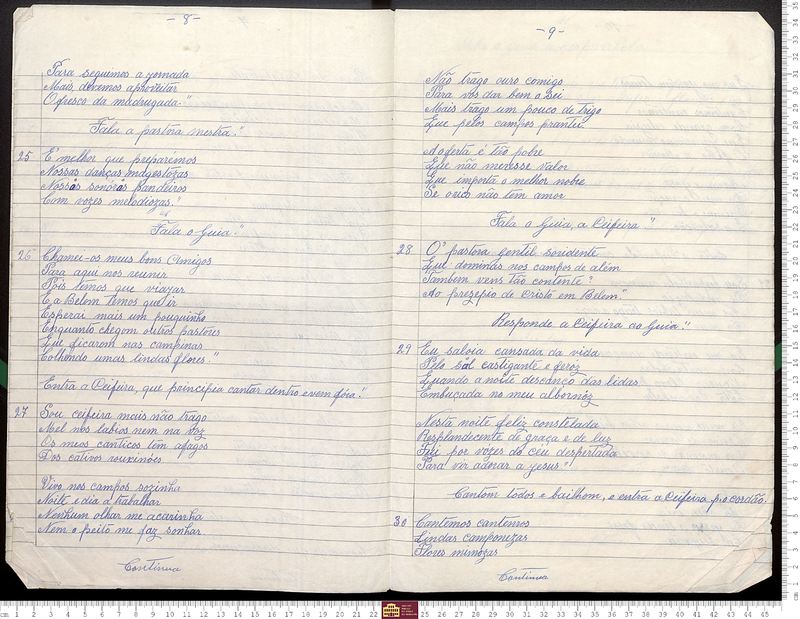 - 8 -
Para seguimos a jornada
Mais devemos aproveitar
O fresco da madrugada."
Fala a pastora mestra."
25 E' melhor que preparemos
Nossas danças magestozas
Nossos sonóros pandeiros
Com vozes melodiozas."
Fala o Guia."
26 Chamei-os meus bons amigos
Para aqui nos reunir
Pois temos que viajar
E a Belem temos que ir
Esperai mais um pouquinho
Enquanto chegam outros pastores
Que ficaram nas campinas
Colhendo umas lindas flores."
Entra a Ceifeira, que principia cantar dentro e vem fóra."
27 Sou ceifeira mais não trago
Mel nos labios nem na voz
Os meos canticos têm afagos
Dos cativos rouxinóes
Vivo nos campos sozinha
Noite e dia a trabalhar
Nenhum olhar me acarinha
Nem o peito me faz sonhar
Continua
- 9 -
Não trago ouro comigo
Para vos dar bem o sei
Mais trago um pouco de trigo
Que pelos campos prantei.
A oferta é tão pobre
Que não meresse valor
Que importa o melhor nobre
Se o rico não tem amor
Fala o Guia, a Ceifeira"
28 O' pastora gentil soridente
Que dominas nos campos de além
Tambem vens tão contente"
Ao prezepio de Cristo em Belem."
Responde a Ceifeira ao Guia."
29 Eu saloia cansada da vida
Pelo sól castigante e feroz
Quando a noite descanço das lidas
Embuçada no meu albornóz
Nesta noite feliz constelada
Resplandecente de graça e de luz
Fui por vozes do céu despertada
Para vir adorar a Jesus"
Cantam todos e bailham, e entra a Ceifeira p. o cordão.
30 Cantemos cantemos
Lindas camponezas
Flores mimozas
Continua